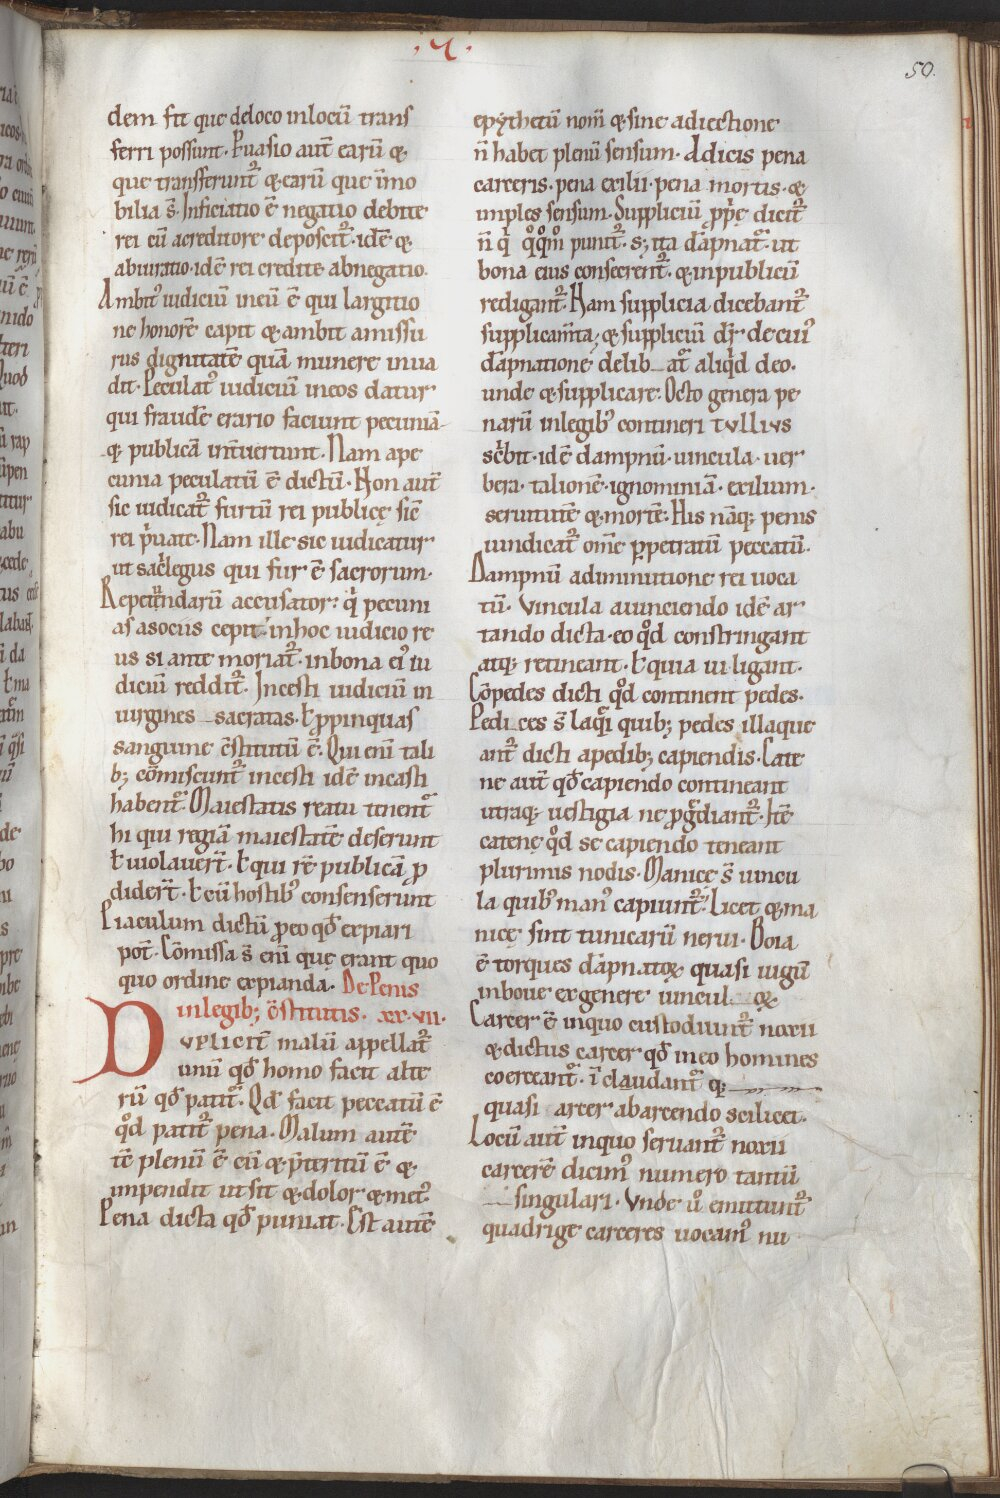 .V.
50.
dem fit que de loco in locū trans
ferri possunt. Puasio aut̄ earū &
que transferunt᷑ & earū que īmo
bilia s̄. Inficiatio ē negatio debite
rei cū acreditore deposcit᷑. idē &
abiuratio. idē rei credite abnegatio.
Ambit᷒ iudiciū ineū ē qui largitio
ne honorē capit & ambit amissu
rus dignitatē quā munere inua
dit. Peculat᷒ iudiciū ineos datur
qui fraudē erario faciunt pecuniā
q; publicā int̄uertunt. Nam ape
cunia peculatū ē dictū. Non aut̄
sic iudicat᷑ furtū rei publicę siē
rei p̍uate. Nam ille sic iudicatur
ut sac̍legus qui fur ē sacrorum.
Repetundarū accusator: q̍ pecuni
as asociis cepit. inhoc iudicio re
us si ante moriat᷑. inbona ei᷒ iu
diciū reddit᷑. Incesti iudiciū in
uirgines sacratas. ł ꝓpinquas
sanguine c̄stitutū ē. Qui enī tali
b; cōmiscunt᷑ incesti idē incasti
habent᷑. Maiestatis reatu tenent᷑
hi qui regiā maiestatē deserunt
ł uiolauer̄t. ł qui rē publicā ꝓ
dider̄t. ł cū hostib᷒ consenserunt
Piaculum dictū ꝓeo qđ expiari
pot̄. Cōmissa s̄ enī quę erant quo
quo ordine expianda. De Penis
inlegib; c̄stitutis. xx.vii.
Duplicit̄ malū appellat᷑
unū qđ homo facit alte
rū qđ patit᷑. Qđ facit peccatū ē
qđ patit᷑ pena. Malum autē
tē plenū ē cū & p̄teritū ē &
inpendit ut sit & dolor & met᷒.
Pena dicta qđ puniat. Est autē
epythetū nom̄ & sine adiectione
n̄ habet plenū sensum. Adicis pena
carceris. pena exilii. pena mortis. &
imples sensum. Suppliciū ꝓp̍e dicit᷑
n̄ q̍ qͦqͦm punit᷑. s; ita dāpnat᷑. ut
bona eius consecrent᷑. & inpublicū
redigant᷑. Nam supplicia dicebant᷑
supplicam̄ta; & suppliciū dr̄ de cui᷒
dāpnatione delib at᷑ aliqđ deo.
unde & supplicare. Octo genera pe
narū inlegib᷒ contineri TVLLIVS
sc̍bit. idē dampnū. uincula. uer
bera. talionē. ignominiā. exilium.
seruitutē & mortē. His nāq; penis
uindicat᷑ omē ꝑpetratū peccatū.
Dampnū adiminutione rei uoca
tū. Vincula auinciendo idē ar
tando dicta. eo qđ constringant
atq; retineant. ł quia ui ligant.
Cōpedes dicti qđ continent pedes.
Pedi ces s̄ laq̍i quib; pedes illaque
ant᷑ dicti apedib; capiendis. Cate
ne aut̄ qđ capiendo contineant
utraq; uestigia ne ꝓgͣdiant᷑. Itē
catenę qđ se capiendo teneant
plurimis nodis. Manice s̄ uincu
la quib᷒ man᷒ capiunt᷑. Licet & ma
nicę sint tunicarū nerui. Boia
ē torques dāpnatoꝝ quasi iugū
inboue ex genere uincul oꝝ
Carcer ē inquo custodiunt᷑ noxii
& dictus carcer qđ ineo homines
coerceant᷑. ī claudant᷑ q;
quasi arcer abarcendo scilicet.
Locū aut̄ inquo seruant᷑ noxii
carcerē dicim᷒ numero tantū
singulari. Vnde ů emittunt᷑
quadrige carceres uocam᷒ nu